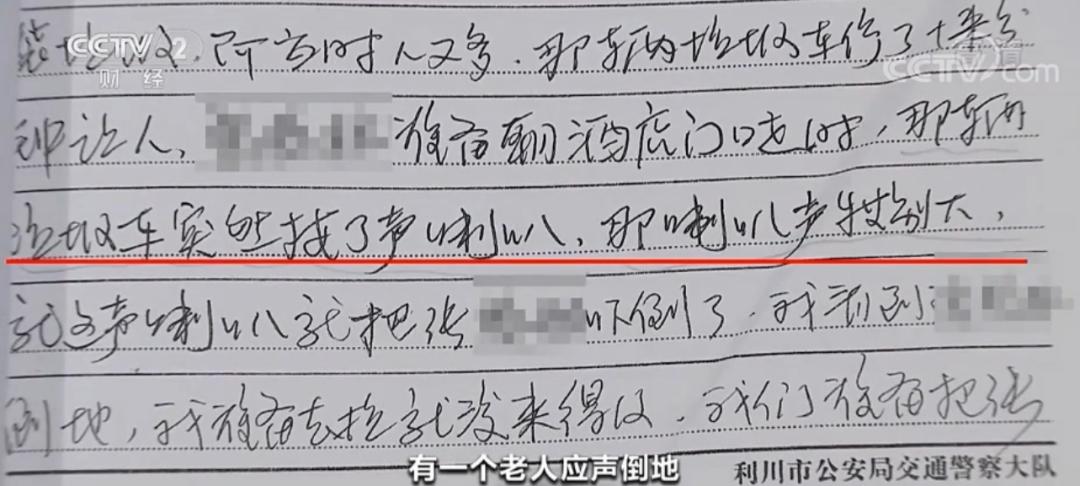 CCTV 2
财经
CCTV.com
垃圾,所以当时人又多,那辆垃圾车停了十来分
钟让人,
准备朝酒店门口走时,那辆
垃圾车突然按了声喇叭,那喇叭声特别大,
就这声喇叭就把张
吓倒了,我看到
倒地,我准备去拉就没来得及,我们准备把张
有一个老人应声倒地
利川市公安局交通警察大队